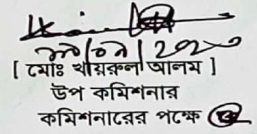 [ মোঃ খায়রুল আলম ]
উপ কমিশনার
কমিশনারের পক্ষে